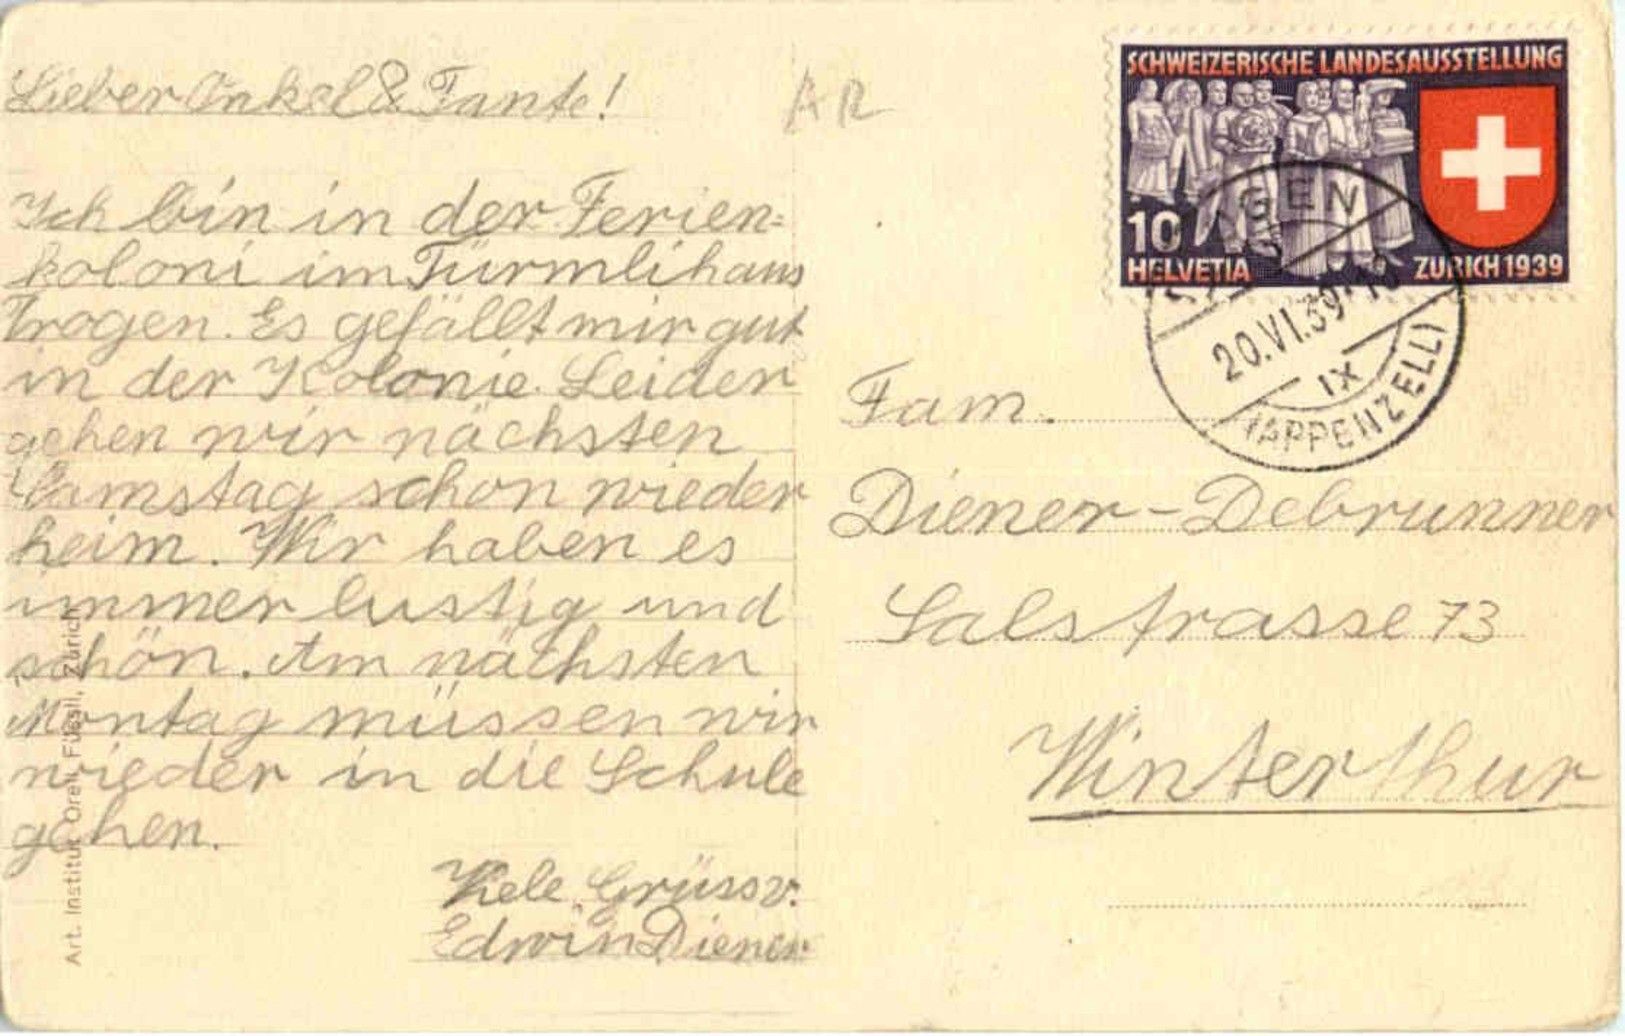 Lieber Onkel & Tante!
Ich bin in der Ferien=
koloni im Türmlihaus
Trogen. Es gefällt mir gut
in der Kolonie. Leider
gehen wir nächsten
Samstag schon wieder
heim. Wir haben es
immer lustig und
schön. Am nächsten
Montag müssen wir
wieder in die Schule
gehen.
Viele Grüss v.
Edwin Diener
Art. Institut Orell Füssli, Zürich
AR
SCHWEIZERISCHE LANDESAUSSTELLUNG
10
HELVETIA
ZÜRICH 1939
20.VI.39
IX
(APPENZELL)
Fam.
Diener-Debrunner
Salstrasse 73
Winterthur